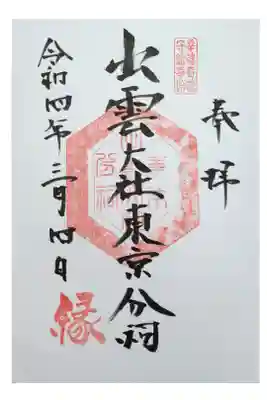 奉拝
出雲大社東京分祠
令和四年三月四日
縁